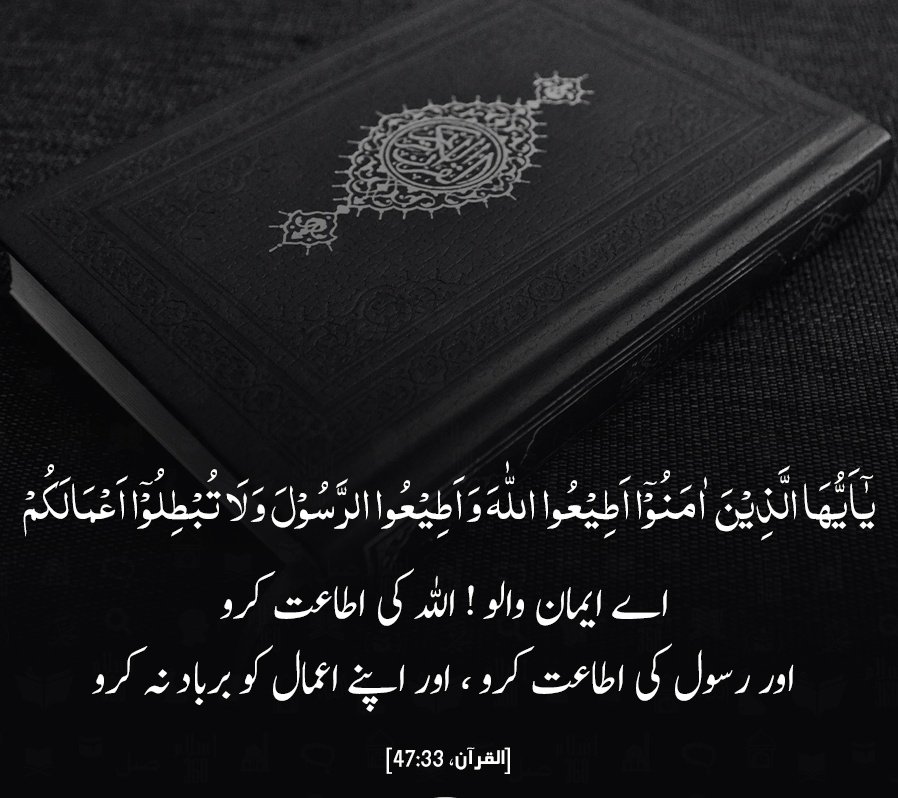 يٰٓاَيُّهَا الَّذِيْنَ اٰمَنُوْٓا اَطِيْعُوا اللّٰهَ وَاَطِيْعُوا الرَّسُوْلَ وَلَا تُبْطِلُوْٓا اَعْمَالَكُمْ
اے ایمان والو ! اللہ کی اطاعت کرو
اور رسول کی اطاعت کرو ، اور اپنے اعمال کو برباد نہ کرو
[القرآن، 47:33]